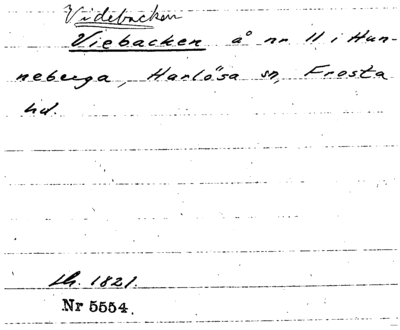 Videbacken
Viebacken å nr 11 i Hun-
neberga, Harlösa sn, Frosta
hd.
1821.
Nr 5554.